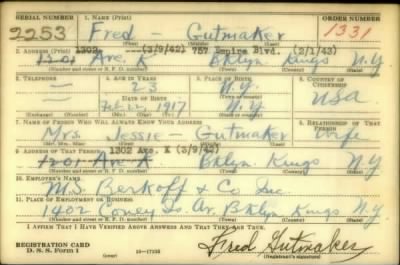 SERIAL NUMBER 1. NAME (Print) ORDER NUMBER
2253 Fred — Gutmaker 1331
(First) (Middle) (Last)
2. ADDRESS (Print) 1302 (3/9/42) 757 Empire Blvd. (2/1/43)
1201 Ave. K Bklyn Kings N.Y.
(Number and street or R. F. D. number) (Town) (County) (State)
3. TELEPHONE 4. AGE IN YEARS 5. PLACE OF BIRTH 6. COUNTRY OF CITIZENSHIP
— 25 N.Y.
DATE OF BIRTH
— Feb. 22, 1917 N.Y. USA.
7. NAME OF PERSON WHO WILL ALWAYS KNOW YOUR ADDRESS 8. RELATIONSHIP OF THAT PERSON
Mrs. Jessie — Gutmaker Wife
(Mr., Mrs., Miss) (First) (Middle) (Last)
9. ADDRESS OF THAT PERSON 1302 Ave. K (3/9/42)
1201 Ave. K Bklyn. Kings N.Y.
(Number and street or R. F. D. number) (Town) (County) (State)
10. EMPLOYER'S NAME
M.S. Berkoff & Co Inc.
11. PLACE OF EMPLOYMENT OR BUSINESS
1402 Coney Is. Av. Bklyn Kings N.Y.
(Number and street or R. F. D. number) (Town) (County) (State)
I AFFIRM THAT I HAVE VERIFIED ABOVE ANSWERS AND THAT THEY ARE TRUE.
REGISTRATION CARD
D. S. S. Form 1 (over) Fred Gutmaker